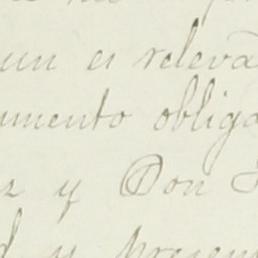 un es releva
umento obliga
z y Don
d y presen